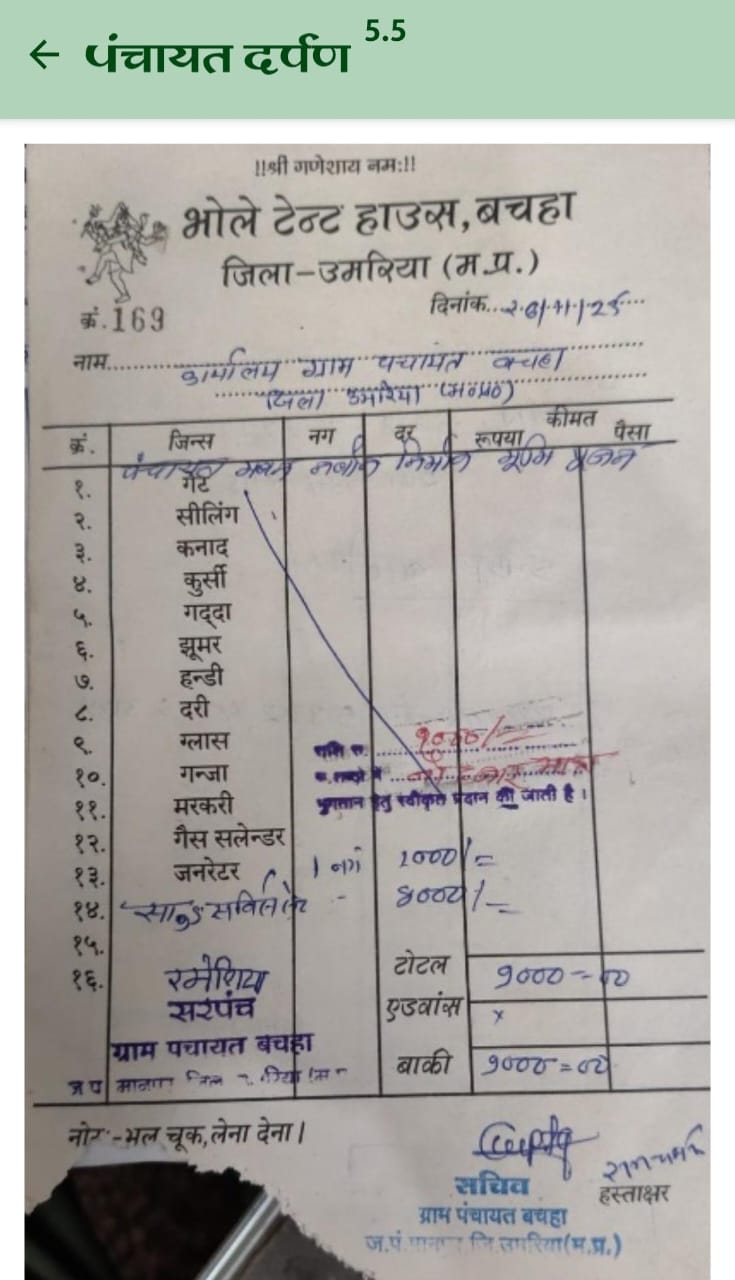 5.5
← पंचायत दर्पण
!!श्री गणेशाय नम:!!
भोले टेन्ट हाउस, बचहा
जिला-उमरिया (म.प्र.)
क्रं. 169
दिनांक
नाम कार्यालय ग्राम पंचायत बचहा
जिला उमरिया (म०प्र०)
क्रं. जिन्स नग दर कीमत
रूपया पैसा
पंचायत भवन नवीन निर्माण भूमि पूजन
१. गेट
२. सीलिंग
३. कनाद
४. कुर्सी
५. गद्दा
६. झूमर
७. हन्डी
८. दरी
९. ग्लास
राशि रू.
१०. गन्जा
११. मरकरी
भुगतान हेतु स्वीकृत प्रदान की जाती है।
१२. गैस सलेन्डर
१३. जनरेटर 1 नग
१४. साउंड
१५.
१६.
टोटल 9000=00
एडवांस x
बाकी 9000=00
सरपंच
ग्राम पंचायत बचहा
नोट:-भूल चूक, लेना देना।
हस्ताक्षर
सचिव
ग्राम पंचायत बचहा
ज.पं. जि. उमरिया (म.प्र.)